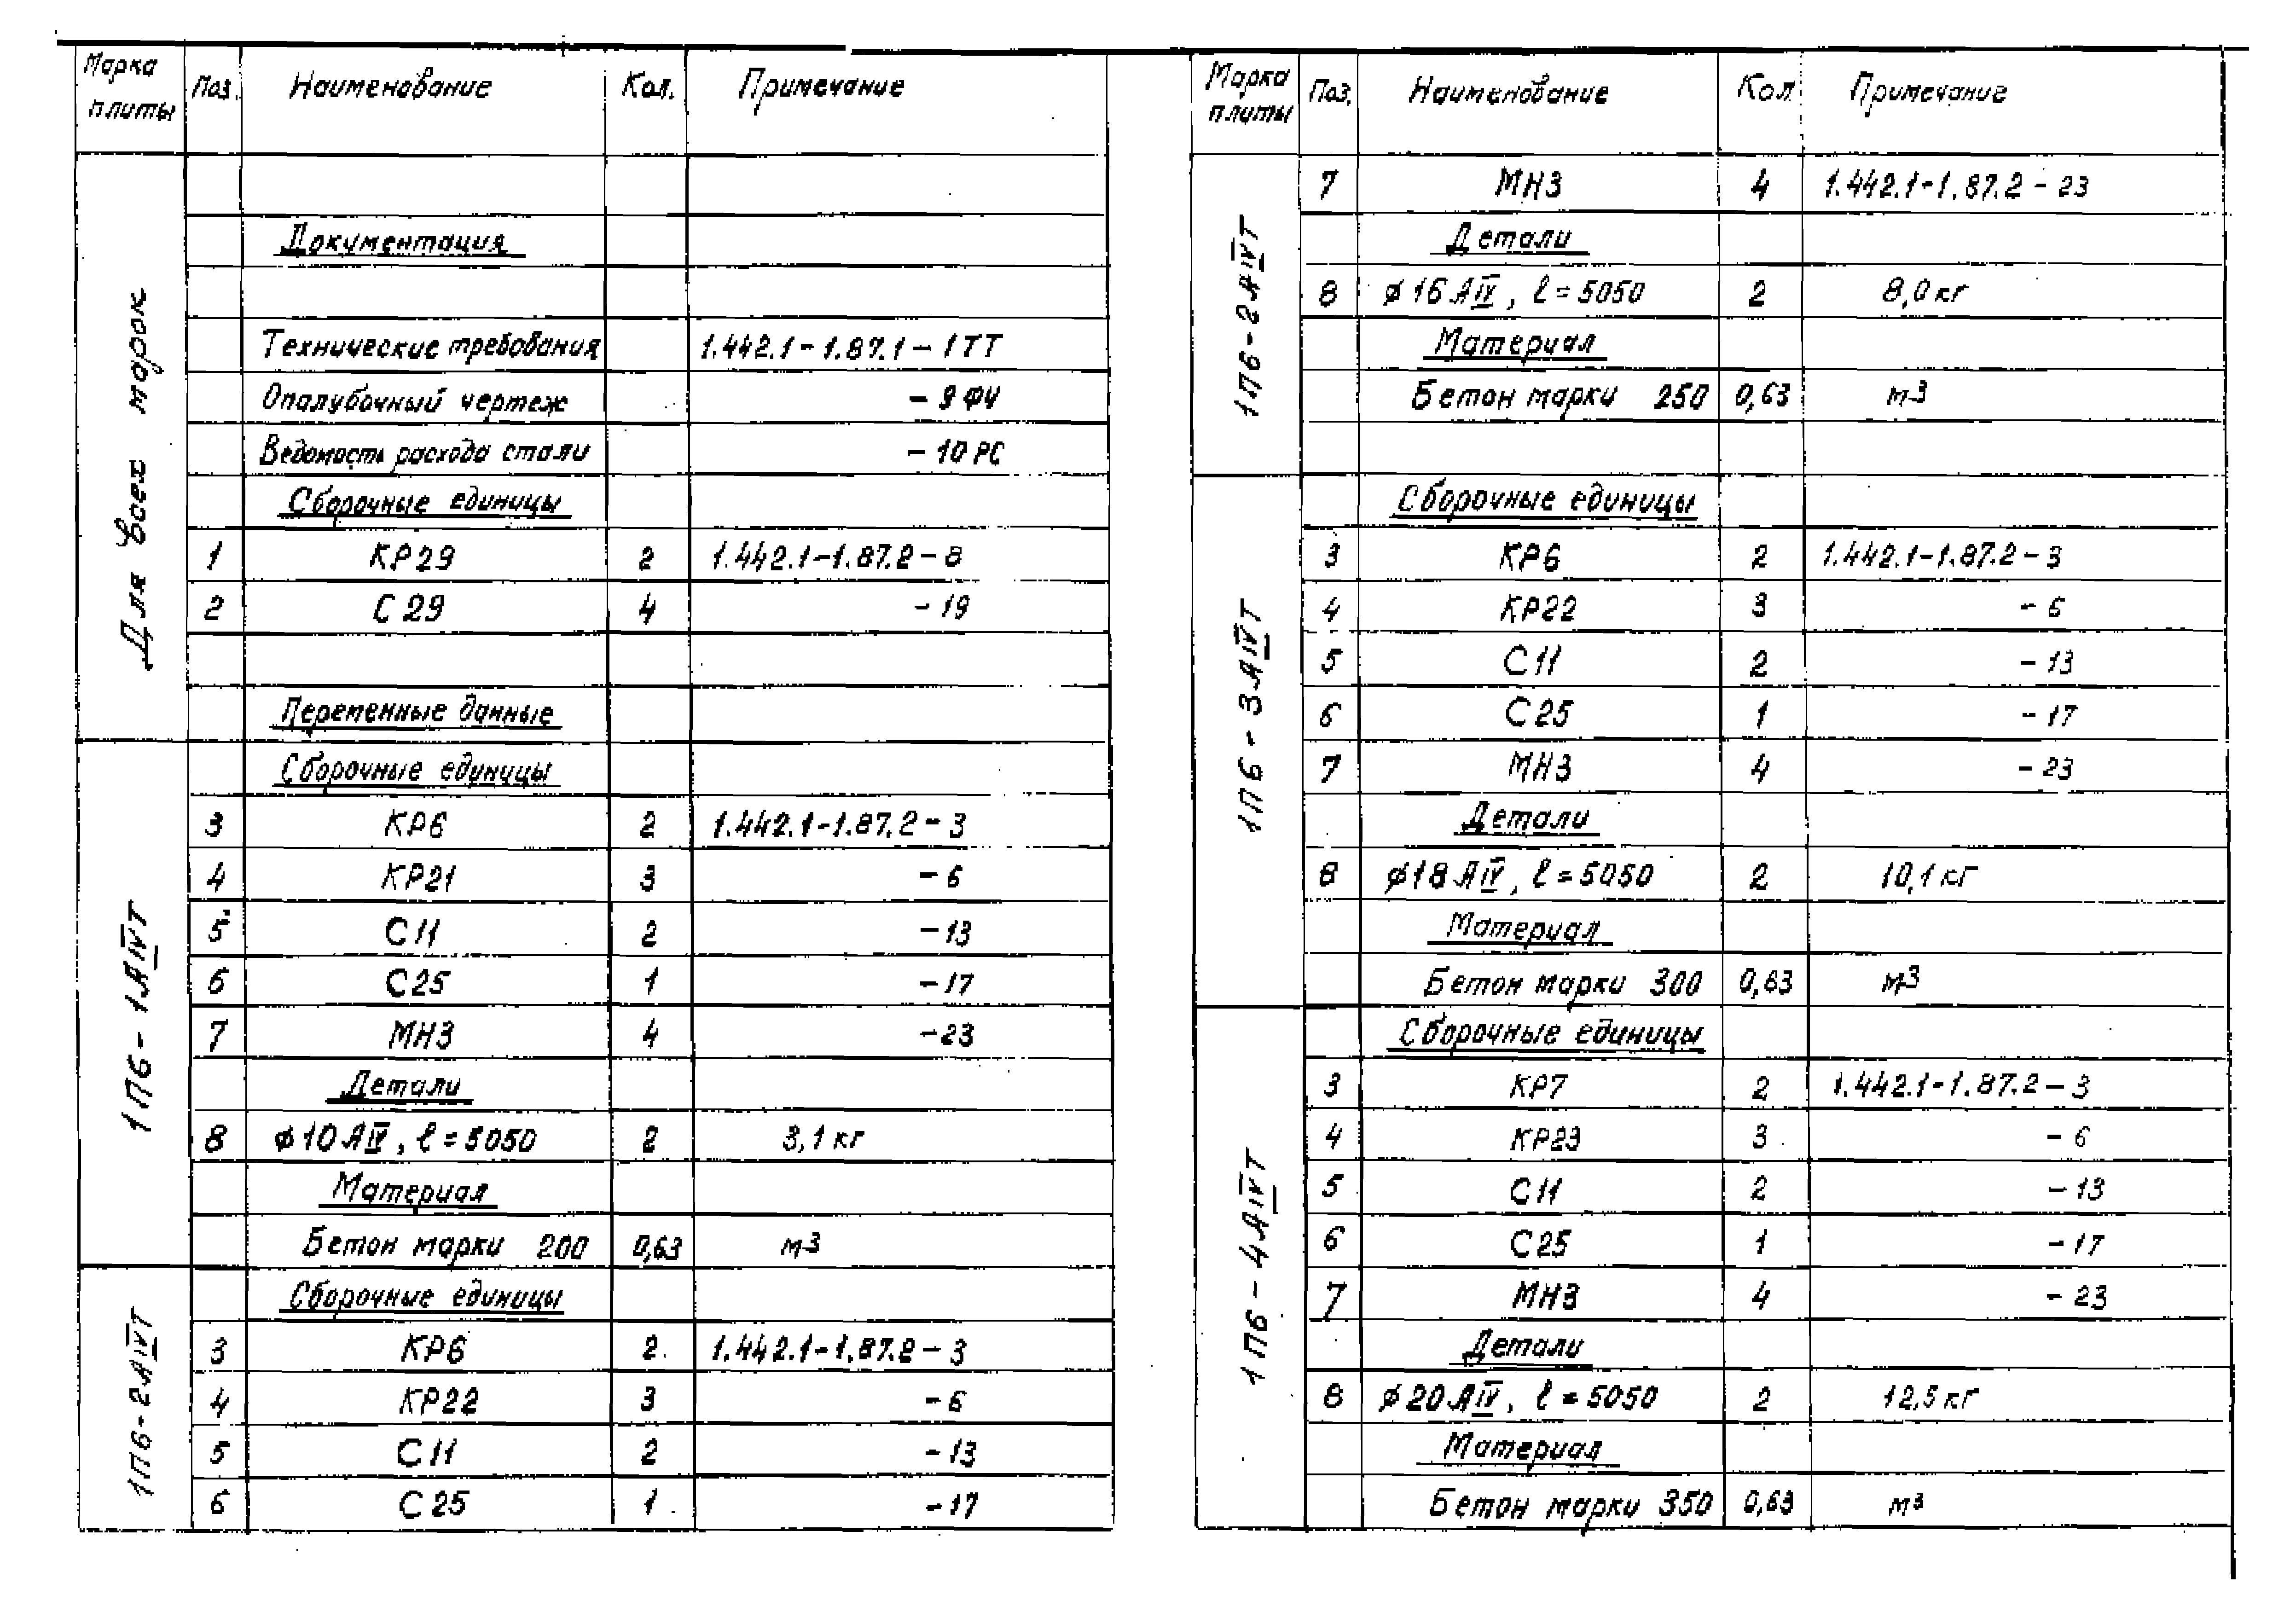 Марка плиты Поз. Наименование Кол. Примечание
Для всех марок
Документация
Технические требования 1.442.1-1.87.1-1ТТ
Опалубочный чертеж -9ФЧ
Ведомость расхода стали -10РС
Сборочные единицы
1 КР29 2 1.442.1-1.87.2-8
2 С29 4 -19
Переменные данные
1П6-1АIVТ
Сборочные единицы
3 КР6 2 1.442.1-1.87.2-3
4 КР21 3 -6
5 С11 2 -13
6 С25 1 -17
7 МН3 4 -23
Детали
8 ϕ10АIV, ℓ=5050 2 3,1 кг
Материал
Бетон марки 200 0,63 м3
1П6-2АIVТ
Сборочные единицы
3 КР6 2 1.442.1-1.87.2-3
4 КР22 3 -6
5 С11 2 -13
6 С25 1 -17
Марка плиты Поз. Наименование Кол. Примечание
1П6-2АIVТ
7 МН3 4 1.442.1-1.87.2-23
Детали
8 ϕ16АIV, ℓ=5050 2 8,0 кг
Материал
Бетон марки 250 0,63 м3
1П6-3АIVТ
Сборочные единицы
3 КР6 2 1.442.1-1.87.2-3
4 КР22 3 -6
5 С11 2 -13
6 С25 1 -17
7 МН3 4 -23
Детали
8 ϕ18АIV, ℓ=5050 2 10,1 кг
Материал
Бетон марки 300 0,63 м3
1П6-4АIVТ
Сборочные единицы
3 КР7 2 1.442.1-1.87.2-3
4 КР23 3 -6
5 С11 2 -13
6 С25 1 -17
7 МН3 4 -23
Детали
8 ϕ20АIV, ℓ=5050 2 12,5 кг
Материал
Бетон марки 350 0,63 м3